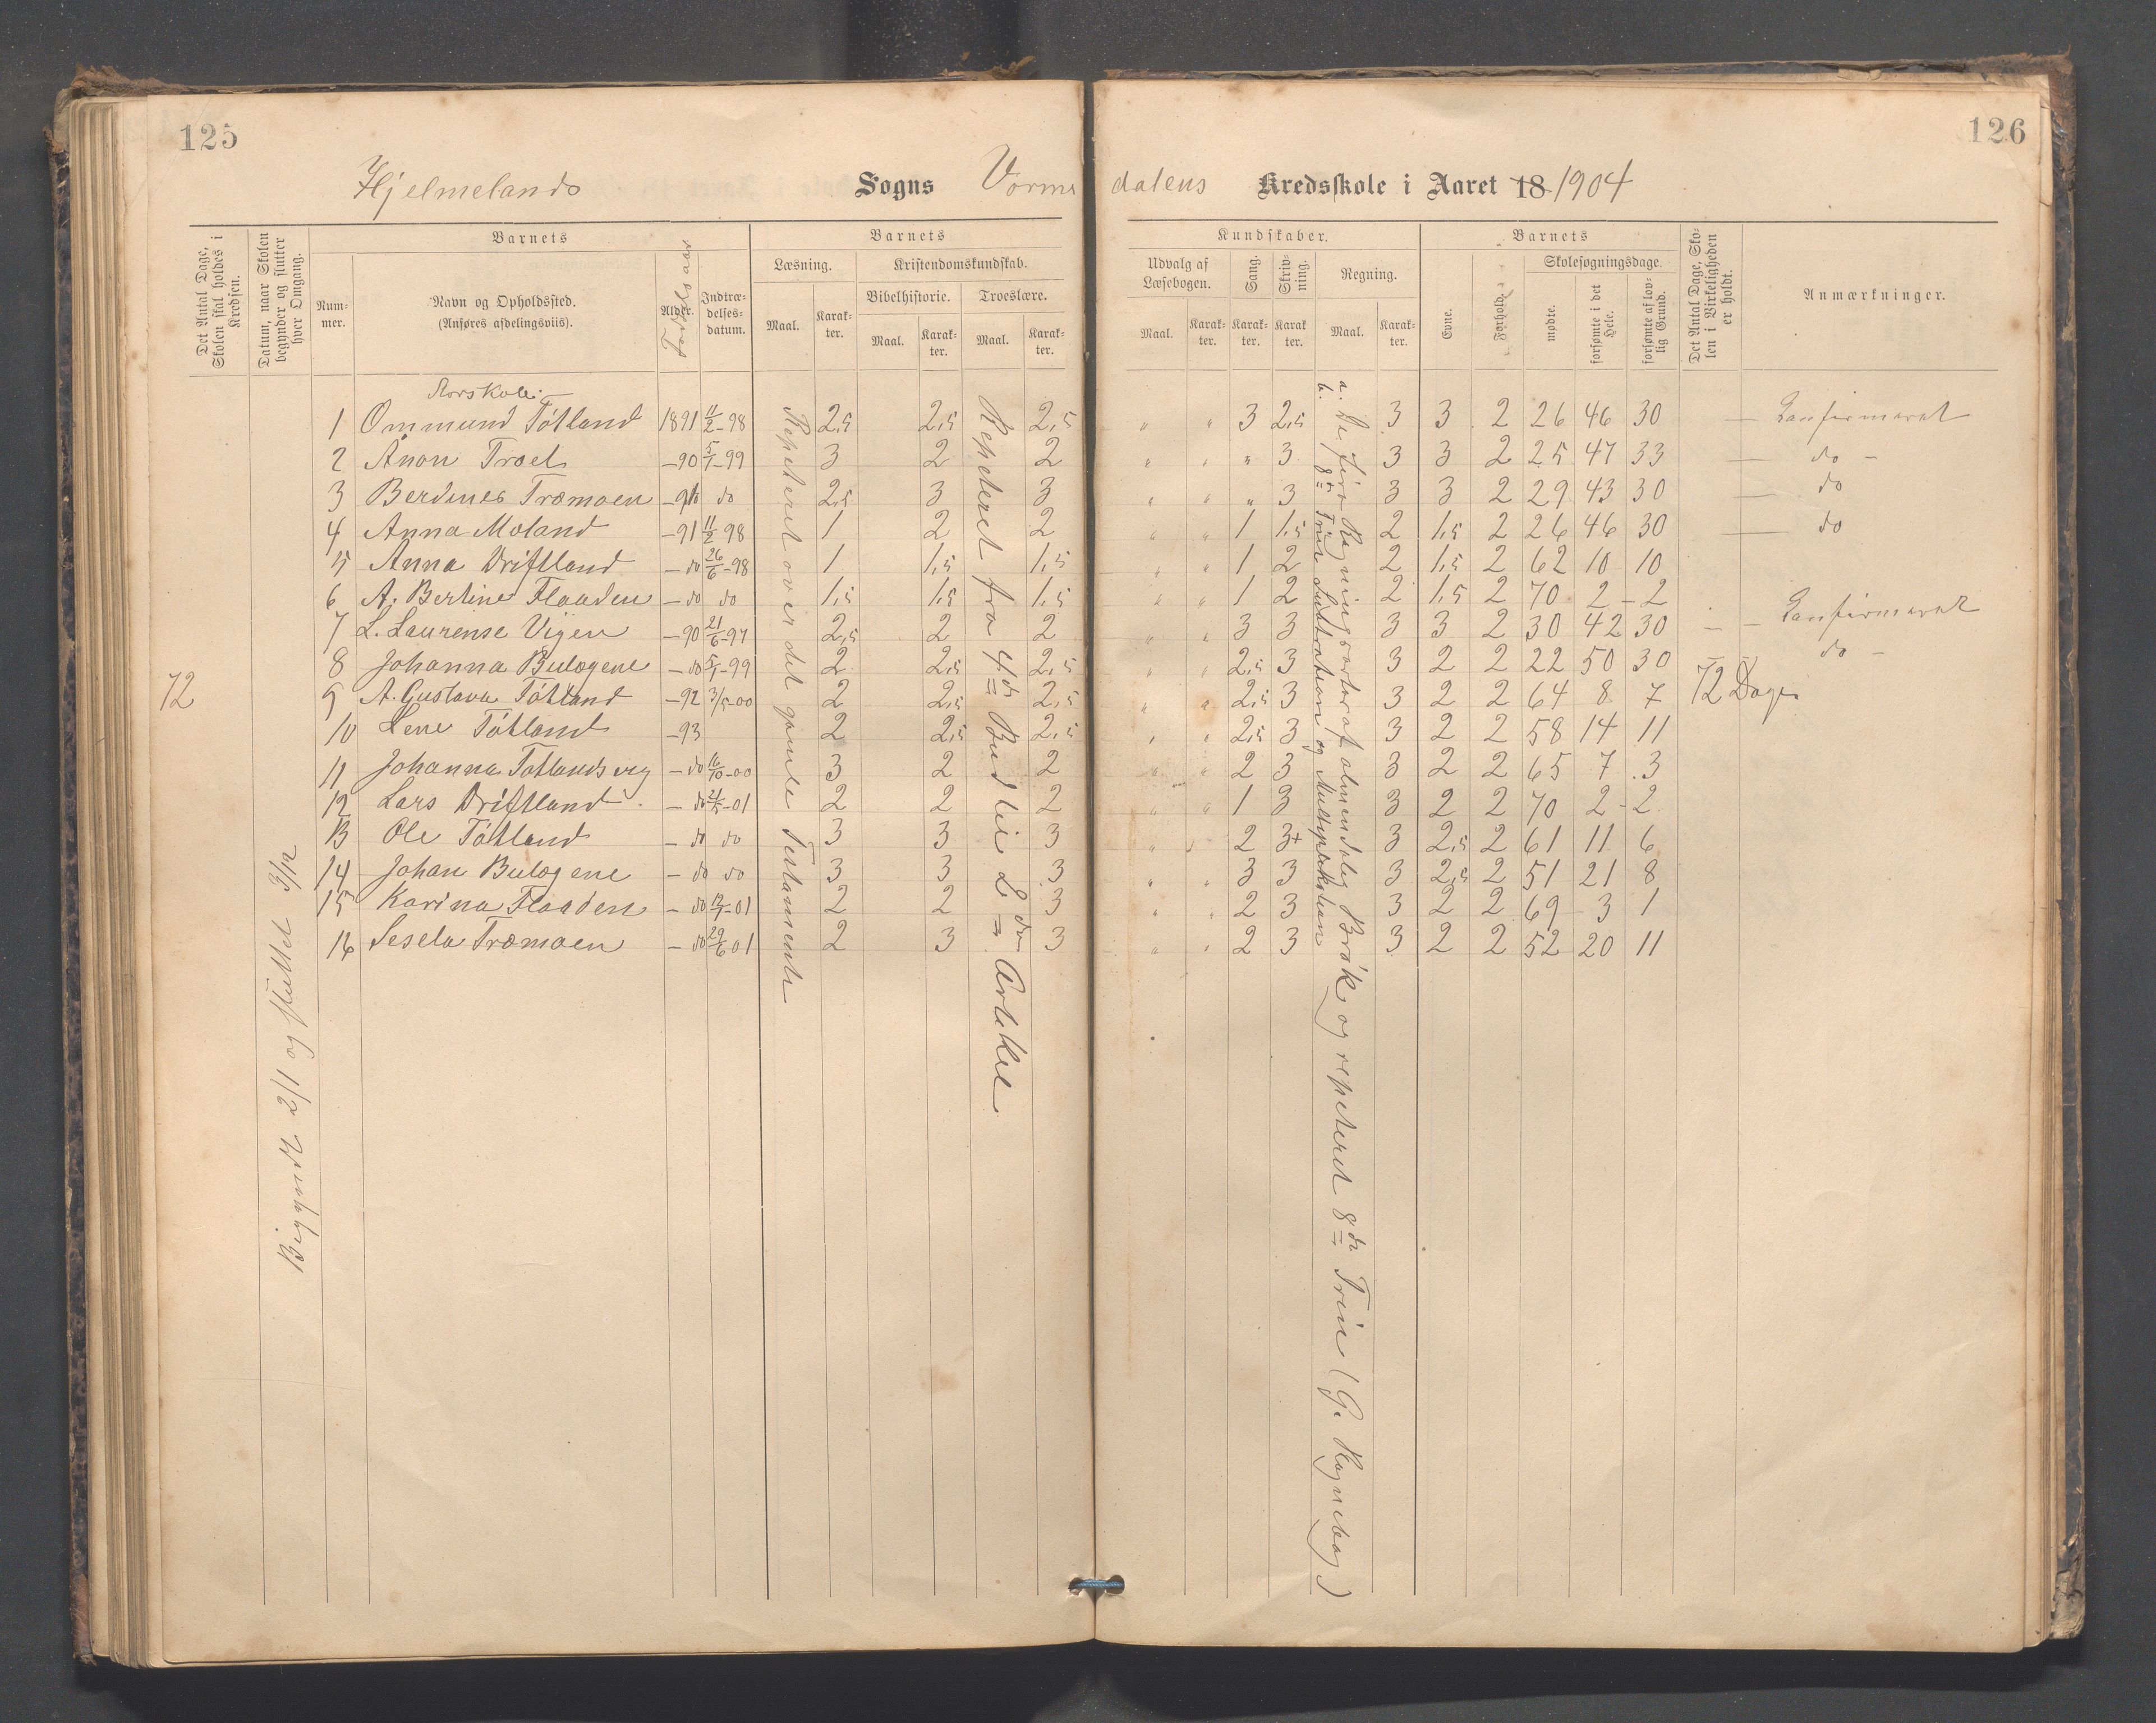 125
126
Hjelmelands Sogns Vorme dalens Kredsskole i Aaret 18 1904
Det Antal Dage, Skolen skal holdes i Kredsen.
Datum, naar Skolen begynder og slutter hver Omgang.
Barnets
Nummer.
Navn og Opholdssted.
(Anføres afdelingsviis).
Alder.
Fødselsaar
Indtrædelsesdatum.
Barnets
Læsning.
Maal.
Karakter.
Kristendomskundskab.
Bibelhistorie.
Maal.
Karakter.
Troeslære.
Maal.
Karakter.
Kundskaber.
Udvalg af Læsebogen.
Maal.
Karakter.
Sang.
Karakter.
Skrivning.
Karakter.
Regning.
Maal.
Karakter.
Barnets
Evne.
Forhold.
Skolesøgningsdage.
mødte.
forsømte i det Hele.
forsømte af lovlig Grund.
Det Antal Dage, Skolen i Virkeligheden er holdt.
Anmærkninger.
Storskole:
1 Ommund Tøtland 1891 11/2-98 2,5 2,5 2,5 " " 3 2,5 3 3 2 26 46 30 — Konfirmeret
2 Ånon Troel -90 5/1-99 3 2 2 " " " 3 3 3 2 25 47 33 — do -
3 Berdines Træmoen -90 do 2,5 3 3 " " " 3 3 3 2 29 43 30 — do
4 Anna Moland -91 11/2 98 1 2 2 " " 1 1,5 2 1,5 2 26 46 30 — do
5 Anna Driftland - do 26/6-98 1 1,5 1,5 " " 1 2 2 1,5 2 62 10 10
6 A. Bertine Flaaden - do do 1,5 1,5 1,5 " " 1 2 2 1,5 2 70 2 - 2
7 L. Laurense Vigen -90 21/6-97 2,5 2 2 " " 3 3 3 3 2 30 42 30 — Konfirmeret
8 Johanna Bulægene - do 5/1-99 2 2,5 2,5 " " 2,5 3 3 2 2 22 50 30 — do -
72 9 A. Gustava Tøtland -92 3/5-00 2 2,5 2,5 " " 2,5 3 3 2 2 64 8 7 72 Dage
10 Lene Tøtland -93 2 2,5 2,5 " " 2,5 3 3 2 2 58 14 11
11 Johanna Tøtlandsvig - do 16/10-00 3 2 2 " " 2 3 3 2 2 65 7 3
12 Lars Driftland - do 21/5-01 2 2 2 " " 1 3 3 2 2 70 2 - 2
13 Ole Tøtland - do do 3 3 3 " " 2 3+ 3 2,5 2 61 11 6
14 Johan Bulægene - do do 3 3 3 " " 3 3 3 2,5 2 51 21 8
15 Karina Flaaden - do 12/7-01 2 2 3 " " 2 3 3 2 2 69 3 1
16 Sesela Træmoen - do 29/6 01 2 3 3 " " 2 3 3 2 2 52 20 11
Begyndt 2/1 og sluttet 3/12
Repeteret over det gamle Testamente
Repeteret fra 4de Bud til 2den Artikel
a. De fire Regningsarter af almindelig Brøk og repeteret 8de Trin (G. Regnebog)
b. 8de Trin Subtraktion og Multiplikation